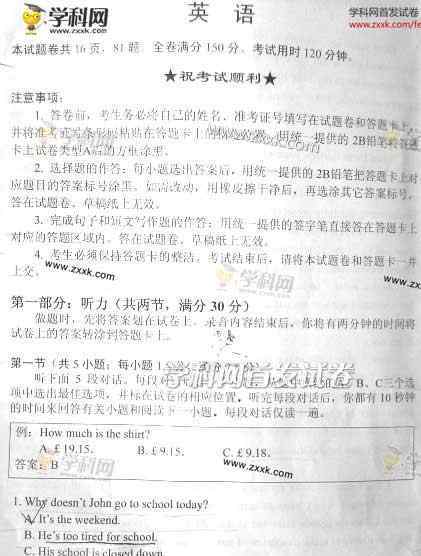 学科网
www.zxxk.com
英 语
学科网首发试卷
www.zxxk.com/fe
本试题卷共16页，81题。全卷满分150分。考试用时120分钟。
★祝考试顺利★
注意事项：
1. 答卷前，考生务必将自己的姓名、准考证号填写在试题卷和答题卡上，
并将准考证号条形码粘贴在答题卡上的指定位置。用统一提供的2B铅笔将答题
卡上试卷类型A后的方框涂黑。
2. 选择题的作答：每小题选出答案后，用统一提供的2B铅笔把答题卡上对
应题目的答案标号涂黑。如需改动，用橡皮擦干净后，再选涂其它答案标号。
答在试题卷、草稿纸上无效。
3. 完成句子和短文写作题的作答：用统一提供的签字笔直接答在答题卡上
对应的答题区域内。答在试题卷、草稿纸上无效。
4. 考生必须保持答题卡的整洁。考试结束后，请将本试题卷和答题卡一并
上交。
学科网
www.zxxk.com
第一部分：听力（共两节，满分30分）
做题时，先将答案划在试卷上。录音内容结束后，你将有两分钟的时间将
试卷上的答案转涂到答题卡上。
学科网首发试卷
www.zxxk.com
第一节（共5小题；每小题1.5分
听下面5段对话。每段对 A、B、C三个选
项中选出最佳选项，并标在试卷的相应位置。听完每段对话后，你都有10秒钟
的时间来回答有关小题和阅读下一小题。每段对话仅读一遍。
例：How much is the shirt?
A. £ 19.15. B. £ 9.15. C. £ 9.18.
答案：B
学科网
www.zxxk.com
1. Why doesn't John go to school today?
A. It's the weekend.
B. He's too tired for school.
C. His school is closed down.